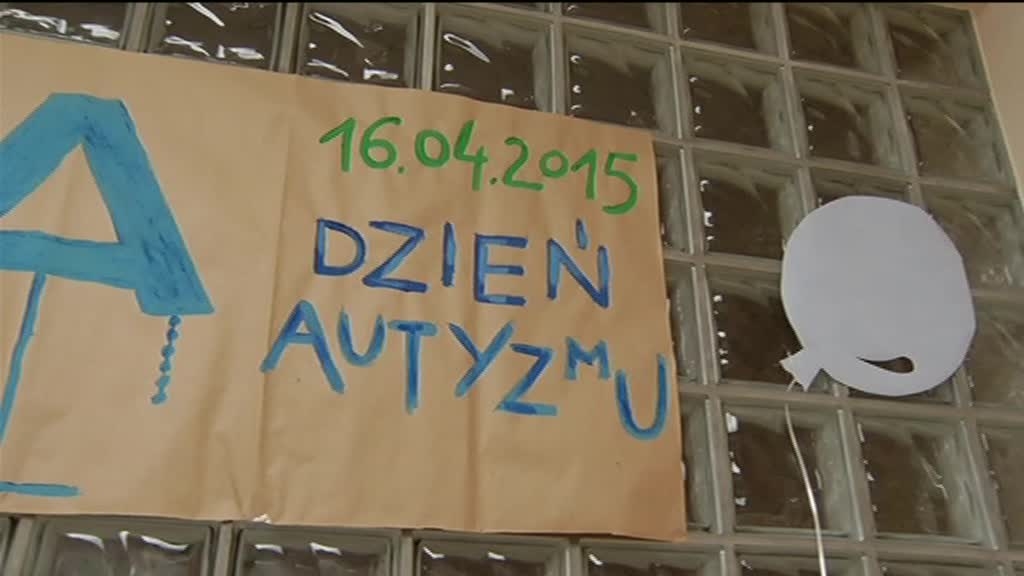 A
16.04.2015
DZIEŃ
AUTYZMU